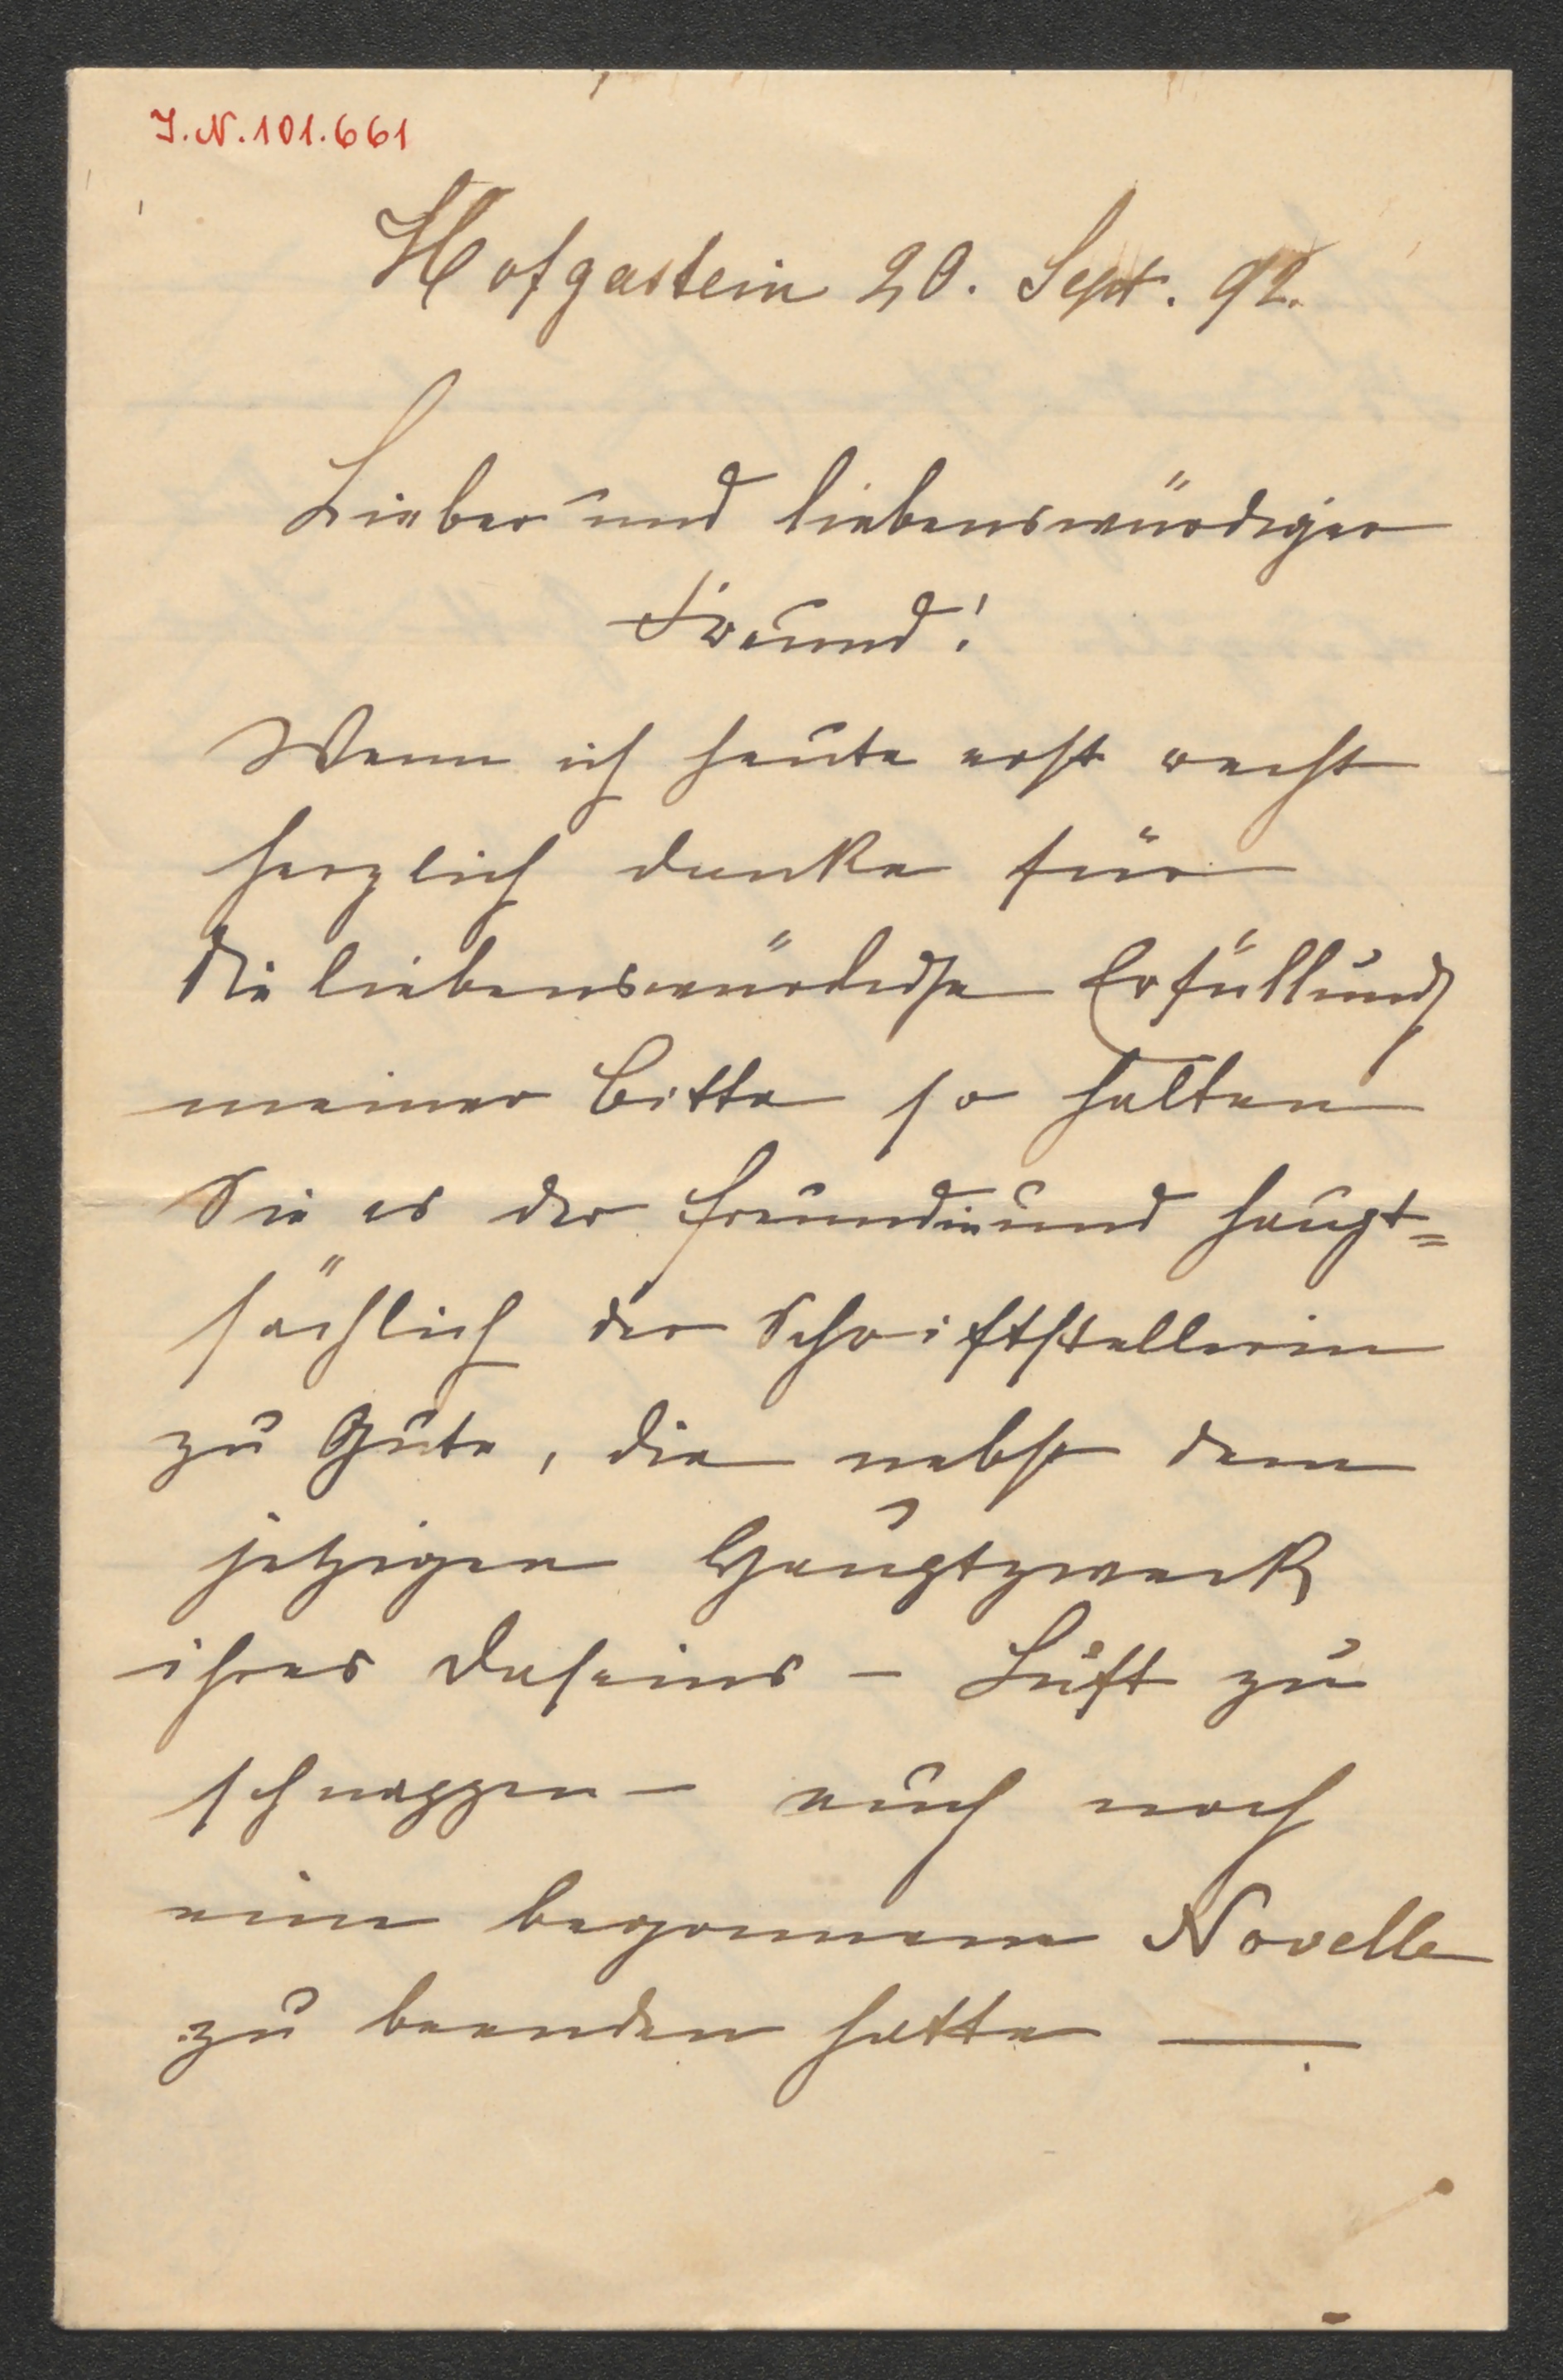 J.N.101.661
Hofgastein 20. Sept. 92.
Lieber und liebenswürdiger
Freund!
Wenn ich heute erst recht
herzlich danke für
die liebenswürdige Erfüllung
meiner Bitte so halten
Sie es der Freundin und haupt=
sächlich der Schriftstellerin
zu Gute, die nebst dem
jetzigen Hauptzweck
ihres Daseins – Luft zu
schnappen – auch noch
eine begonnene Novelle
zu beenden hatte —